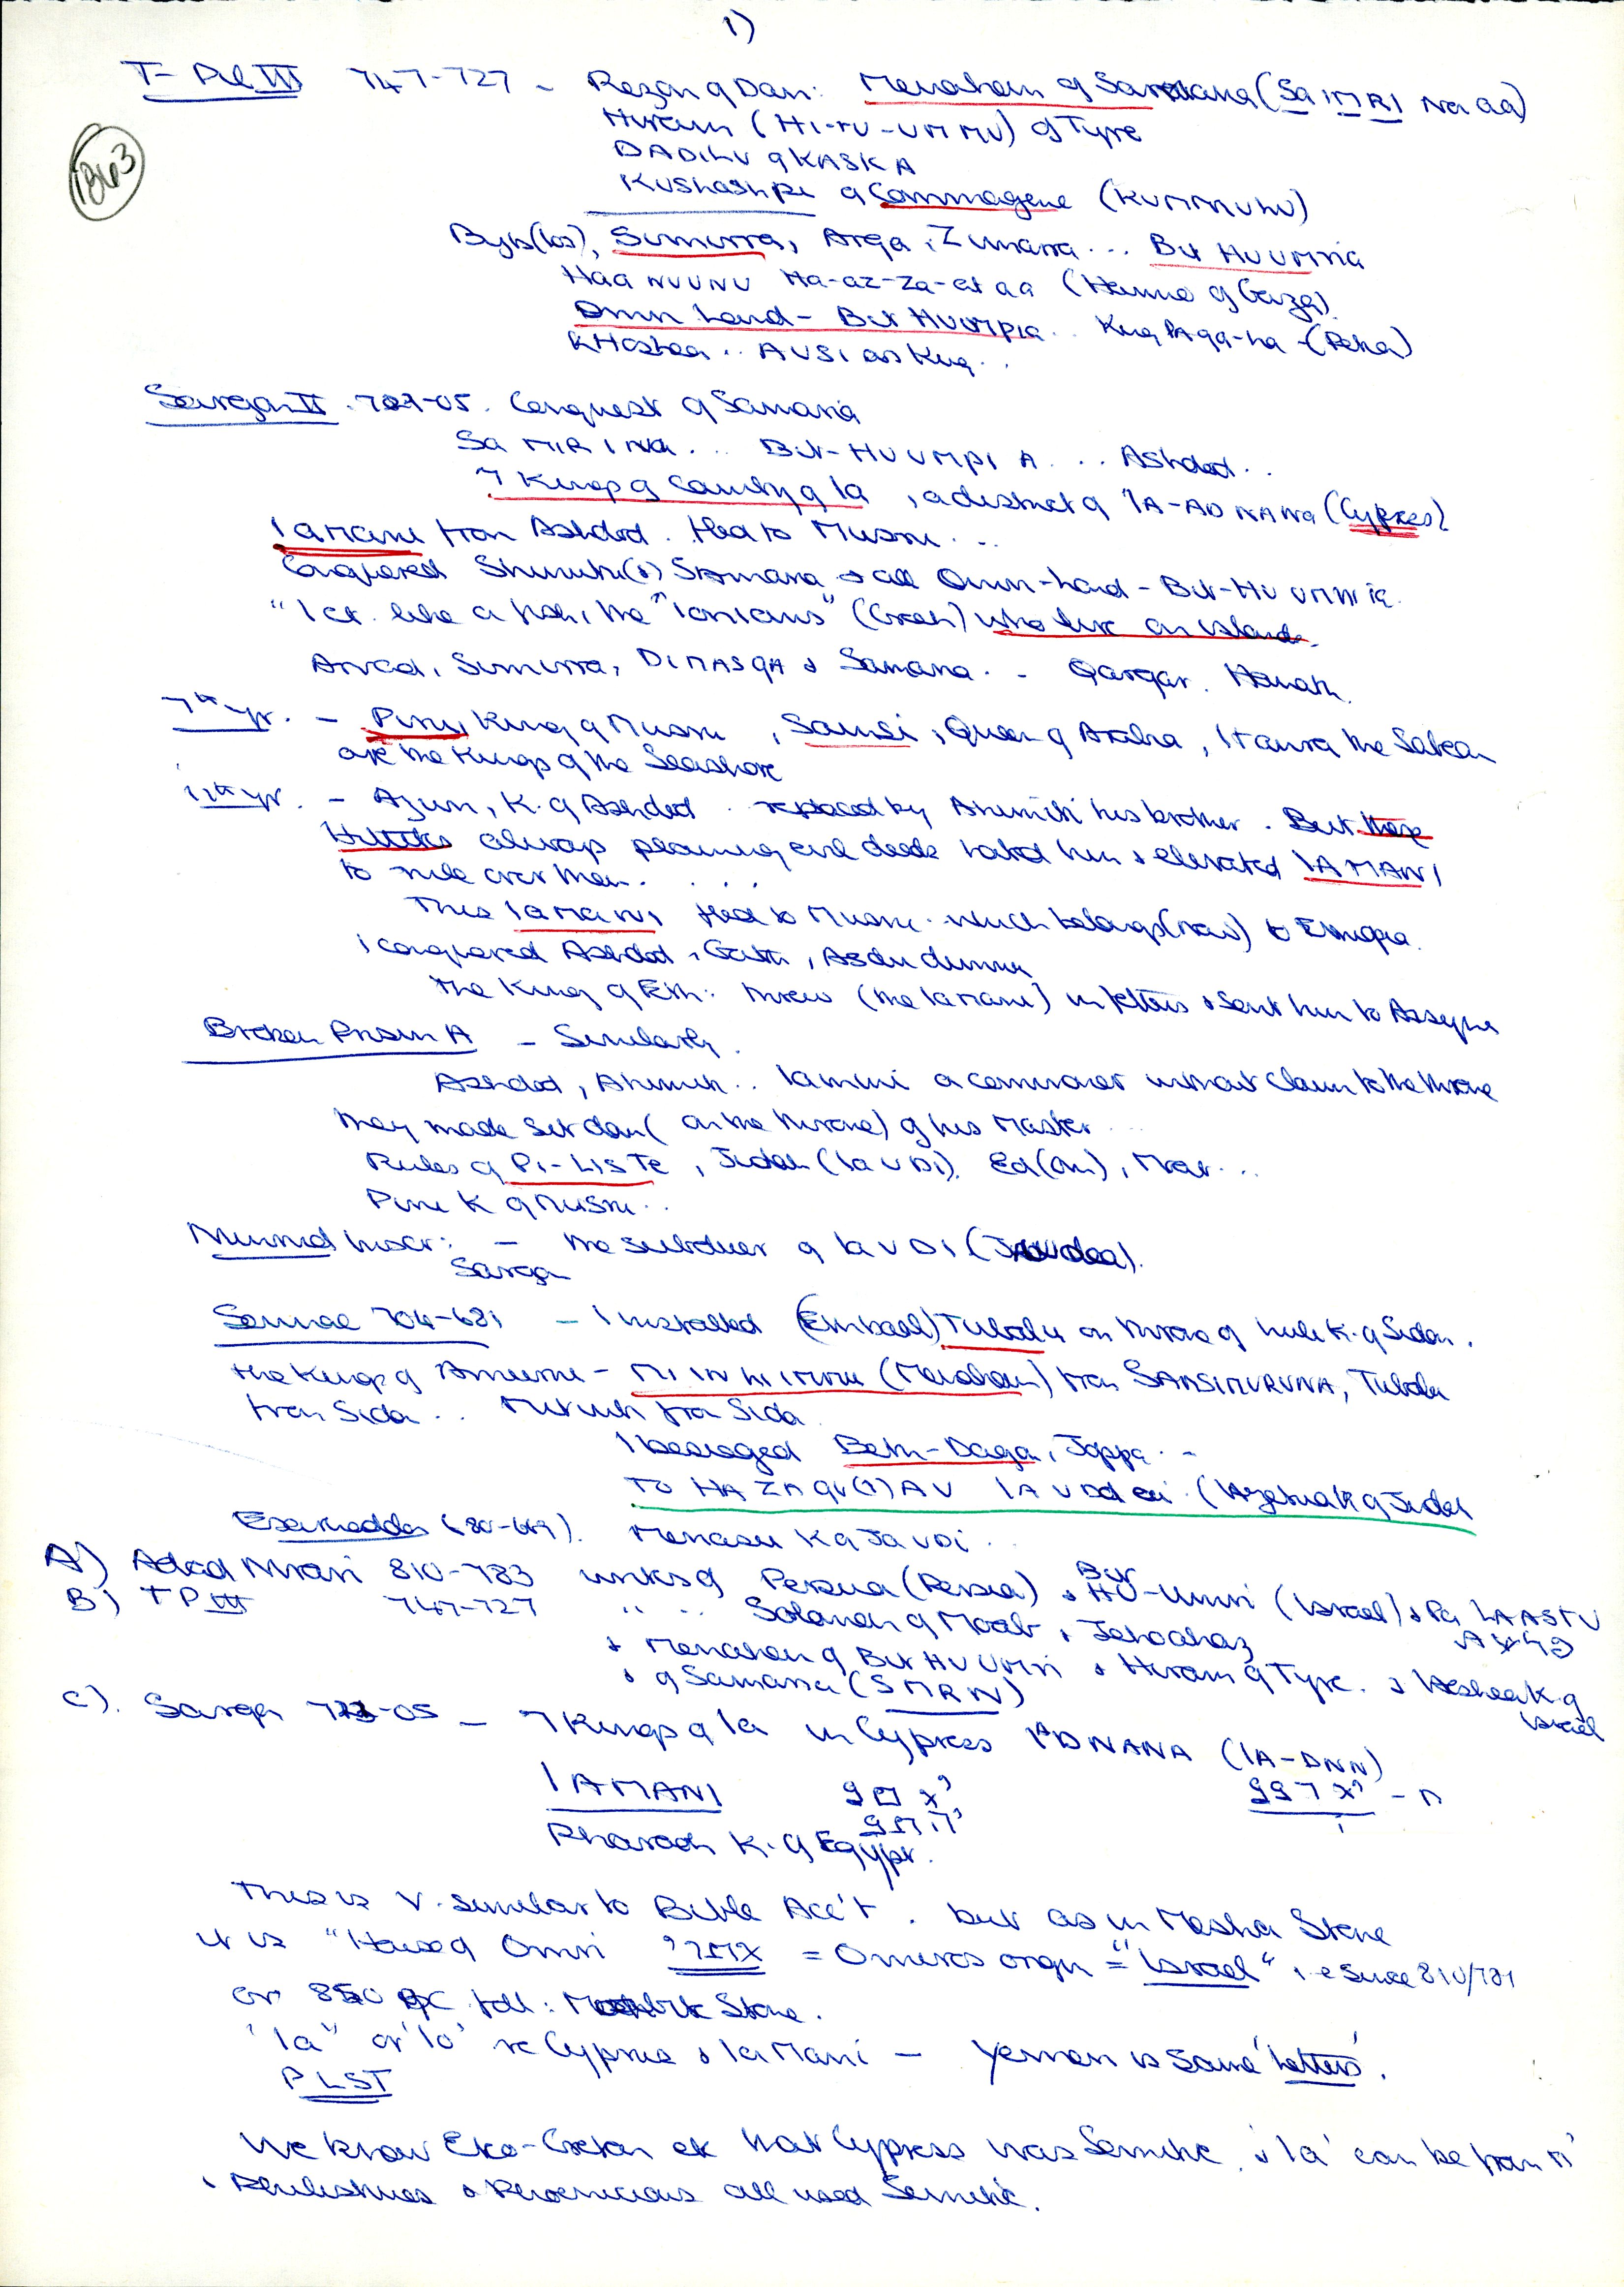 1)
T- Pil III 747-727 - Rezon of Dam: Menahem of Samaria (Sa IMRI Na aa)
1843
Hiram (HI-ru-UMMU) of Tyre
DADILU of KASKA
Kushashpi of Commagene (KUMMUHU)
Byb(los), Simirra, Arqa, Zimarra ... Bit HUUMRIA
Haa NUUNU Ha-az-za-at aa (Hanno of Gaza)
Omri land - Bit HUUMRIA .. King PAqa-ha - (Peka)
Hoshea .. AUSI as King ..
Sargon II . 721-05 . Conquest of Samaria
Sa MIRINA ... Bit-HUUMRI A ... Ashdod ..
7 Kings of Country of Ia , a district of IA-AD NANA (Cypres)
Iamani from Ashdod . fled to Musri ...
Conquered Shinuhtu(?) Samaria & all Omri-land - Bit-HU UMRI ia.
"I ct. like a fish, the "Ionians" (Greek) who live on islands.
Arvad, Simirra, DIMASQA & Samaria . - Qarqar . Hamath.
7th yr. - Piru, King of Musri , Samsi, Queen of Arabia , Itamra the Sabean
are the Kings of the Seashore
11th yr. - Azuri, K. of Ashdod . replaced by Ahimiti his brother . But these
Hittites always planning evil deeds hated him & elevated IAMANI
to rule over them . . . .
This IAMANI fled to Musri . which belongs (now) to Ethiopia.
I conquered Ashdod , Gath , Asdudimmu
The King of Eth: threw (the Iamani) in fetters & sent him to Assyria
Broken Prism A - Similarly.
Ashdod, Ahimiti .. Iamani a commoner without claim to the throne
they made sit down (on the throne) of his Master ...
Rulers of PI-LISTE , Judah (Ia UDI), Ed(om), Moab ...
Piru K of Musri ..
Nimrud Inscr: - the subduer of Ia UDI (Judea).
Sargon
Sennac 704-681 - I installed (Ethbaal) Tubalu on throne of Luli K. of Sidon.
the Kings of Amurru - MI IN HI IMMU (Menahem) from SAMSIMURUNA, Tubalu
from Sidon ..
I besieged Beth-Dagon, Joppa . -
TO HA ZA QI(?) AU IA UDd ai . (Hezekiah of Judah
Esarhaddon (680-669). Menasii K of Ja UDI ..
A) Adad Nirari 810-783 writes of Persua (Persia) & Bit HU-Umri (Israel) & Pa LAASTU
B) TP III 747-727 " " Solomon of Moab, Jehoahaz
& Menahem of Bit HU UMRI & Hiram of Tyre . & Hoshea K. of Israel
& of Samaria (SMRN)
C). Sargon 723-05 - 7 Kings of Ia in Cypress ADNANA (IA-DNN)
IAMANI
Pharaoh K. of Egypt.
This is v. similar to Bible Acc't . but as in Mesha Stone
it is "House of Omri = Omeros orgn = "Israel" i.e since 810/781
or 850 BC foll: Moabite Stone.
'Ia" or 'Io' re Cyprus & Ia Mani - Yemen is same 'letters'.
PLST
We know Eteo-Cretan etc that Cypress was Semitic . & 'Ia' can be from
& Philistines & Phoenicians all used Semitic.